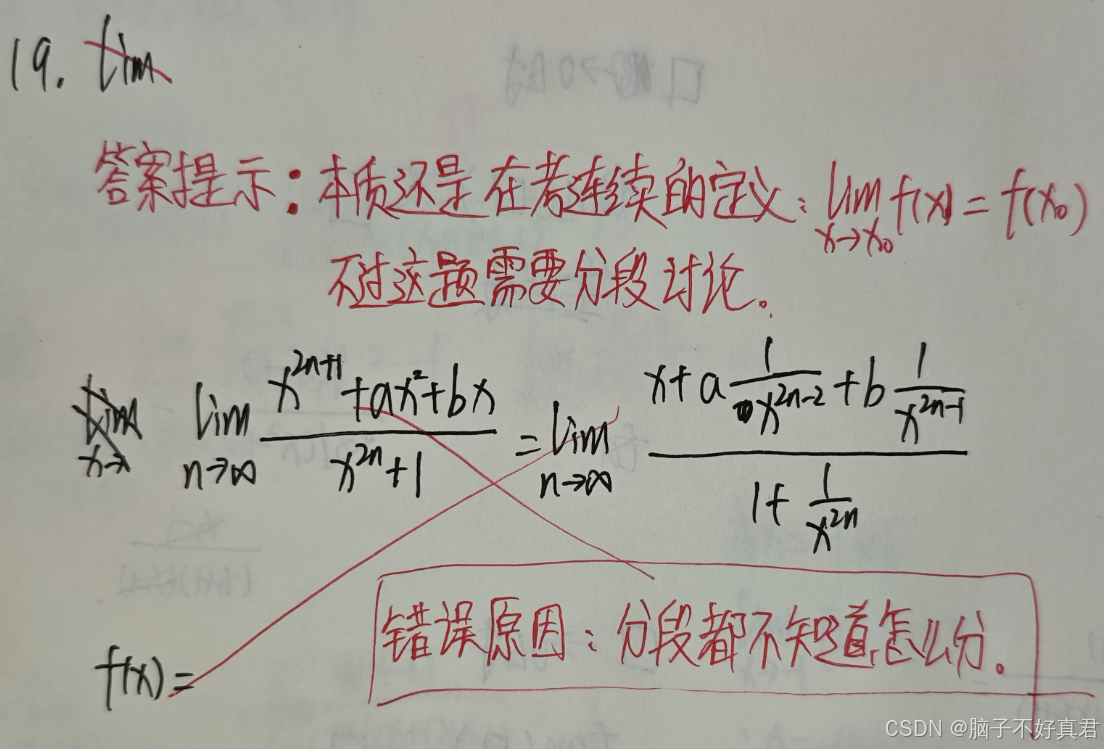 19. lim
答案提示：本质还是在考连续的定义：lim x→x₀ f(x) = f(x₀)
不过这题需要分段讨论。
lim x→ lim n→∞ (x^{2n+1}+ax²+bx)/(x^{2n}+1) = lim n→∞ (x+a 1/x^{2n-2}+b 1/x^{2n-1})/(1+1/x^{2n})
错误原因：分段都不知道怎么分。
f(x)=
CSDN @脑子不好真君